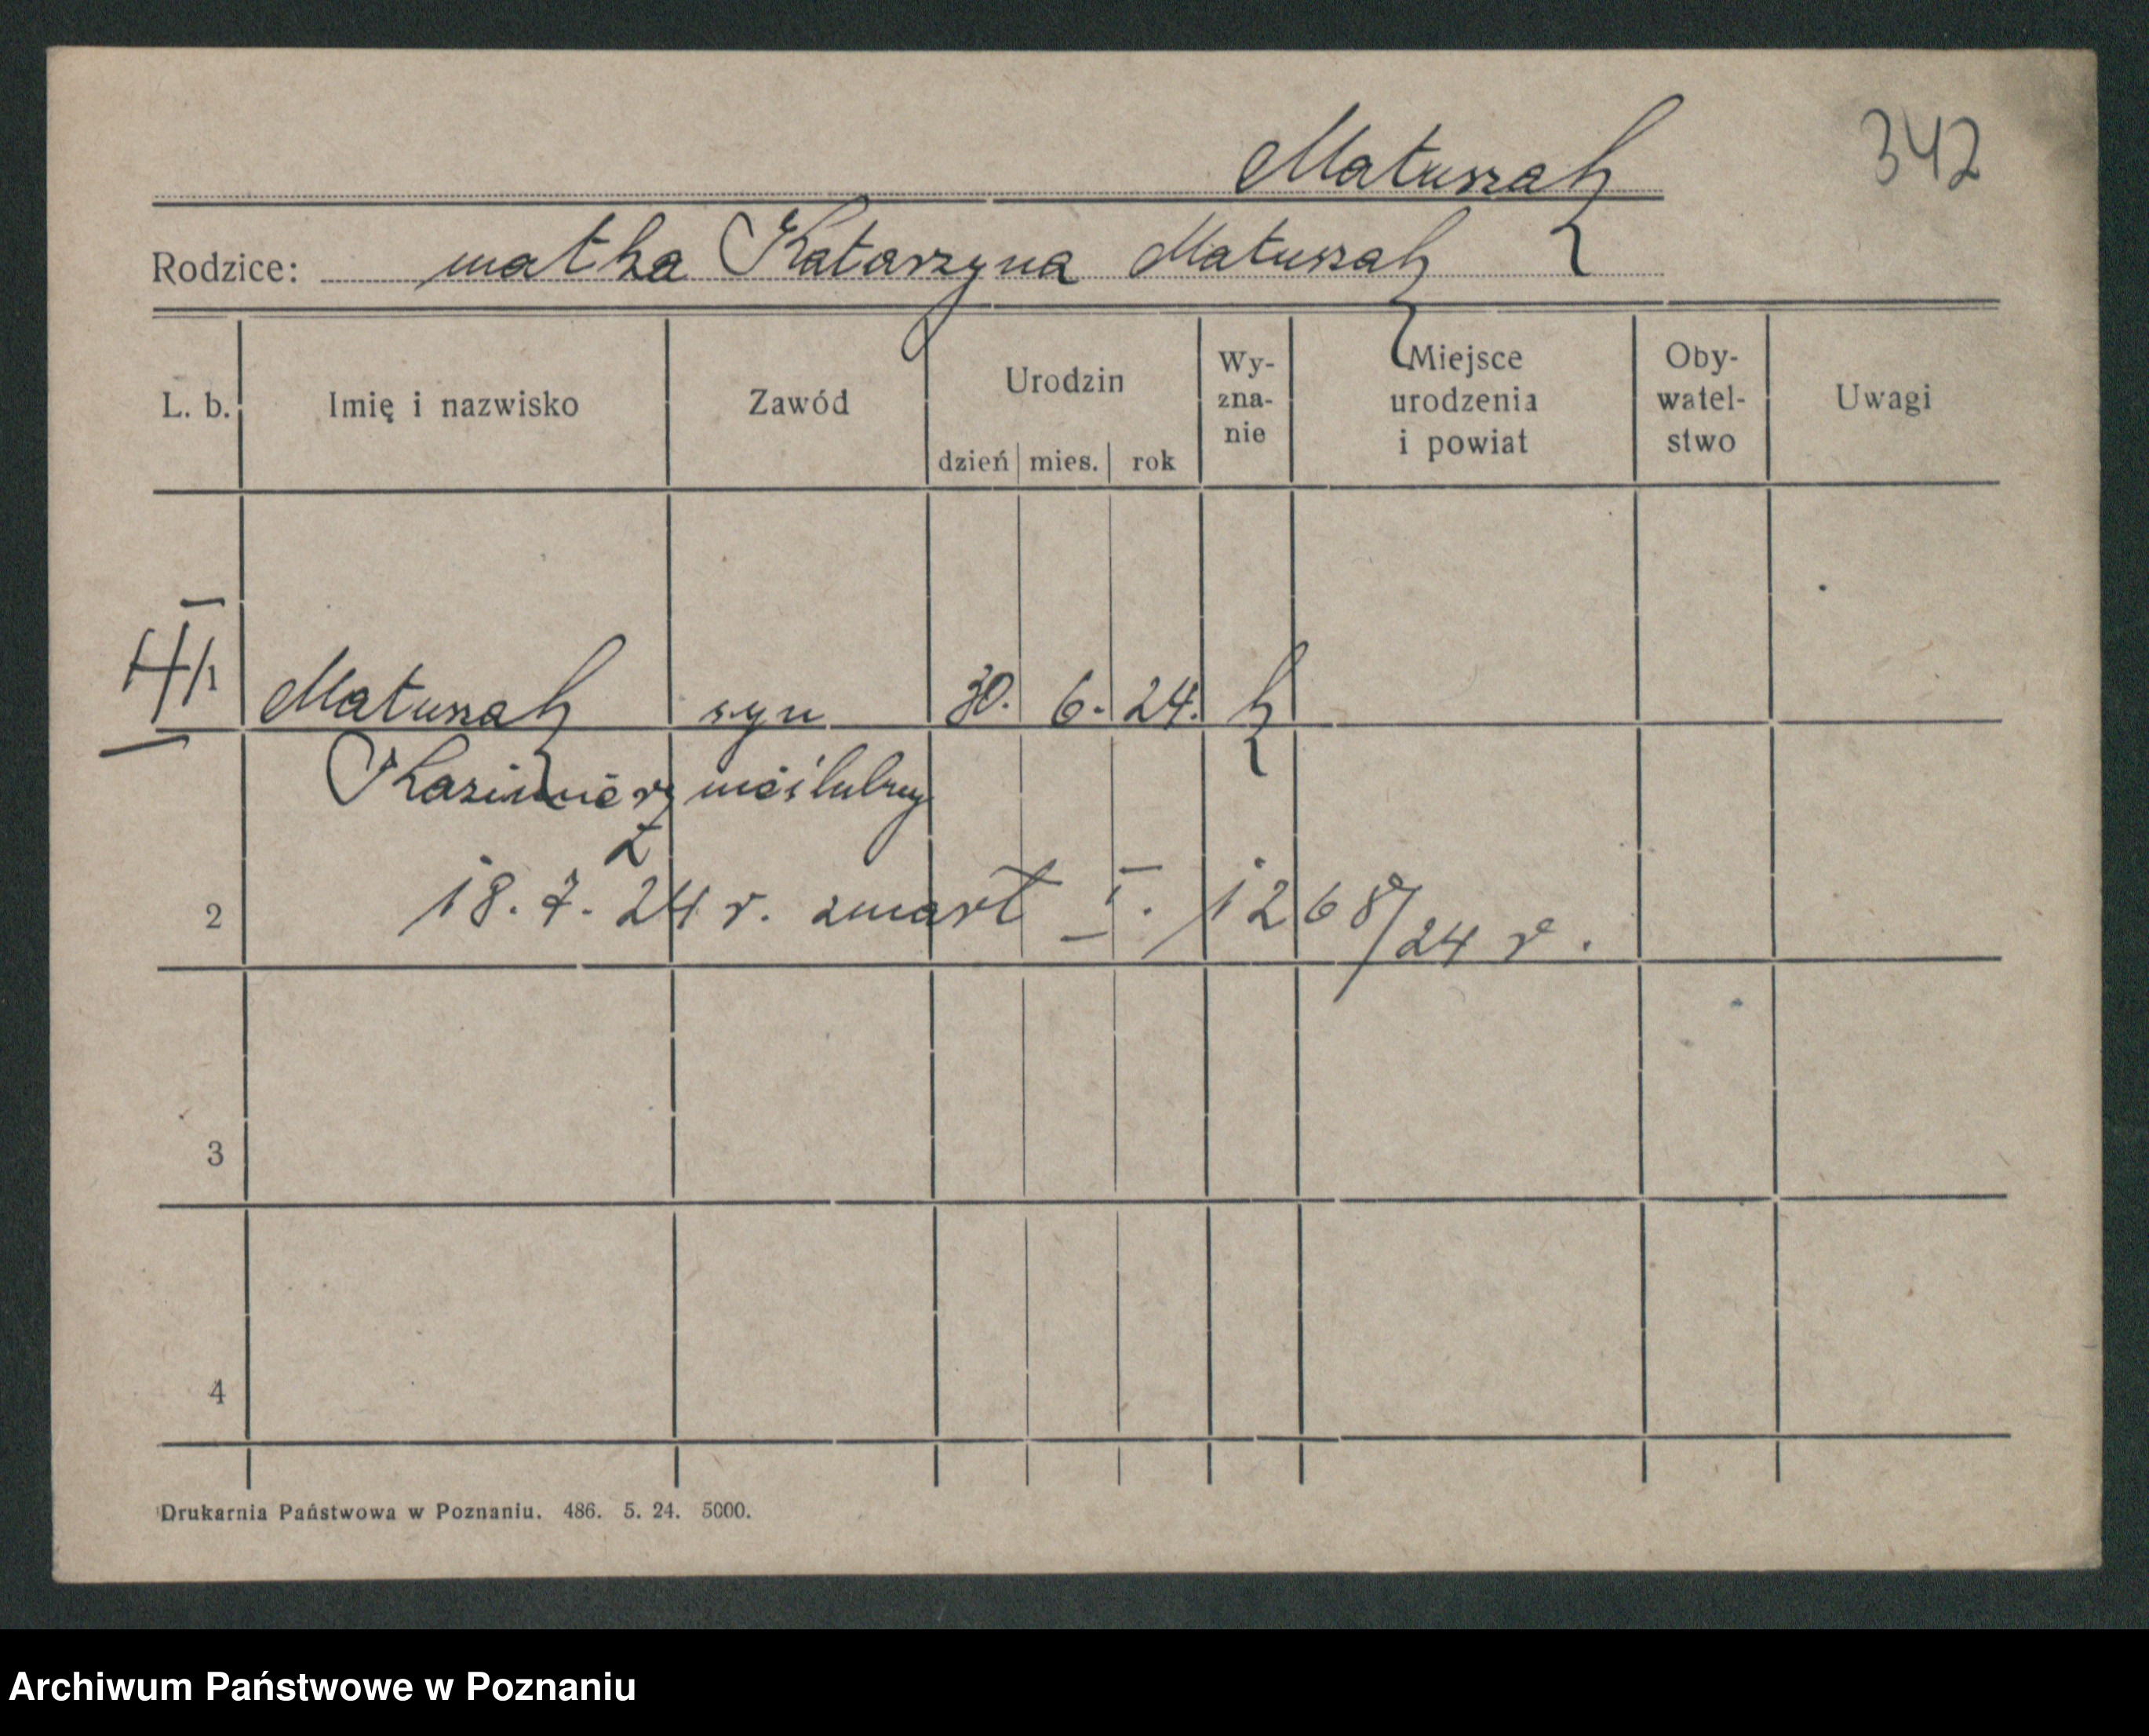 Matuszak 342
Rodzice: matka Katarzyna Matuszak
L. b. Imię i nazwisko Zawód Urodzin dzień mies. rok Wy-zna-nie Miejsce urodzenia i powiat Oby-watel-stwo Uwagi
Matuszak syn 30. 6. 24. k
Kazimierz nieślubny
2 18. 7. 24 r. zmart I. 1268/24 r.
3
4
Drukarnia Państwowa w Poznaniu. 486. 5. 24. 5000.
Archiwum Państwowe w Poznaniu